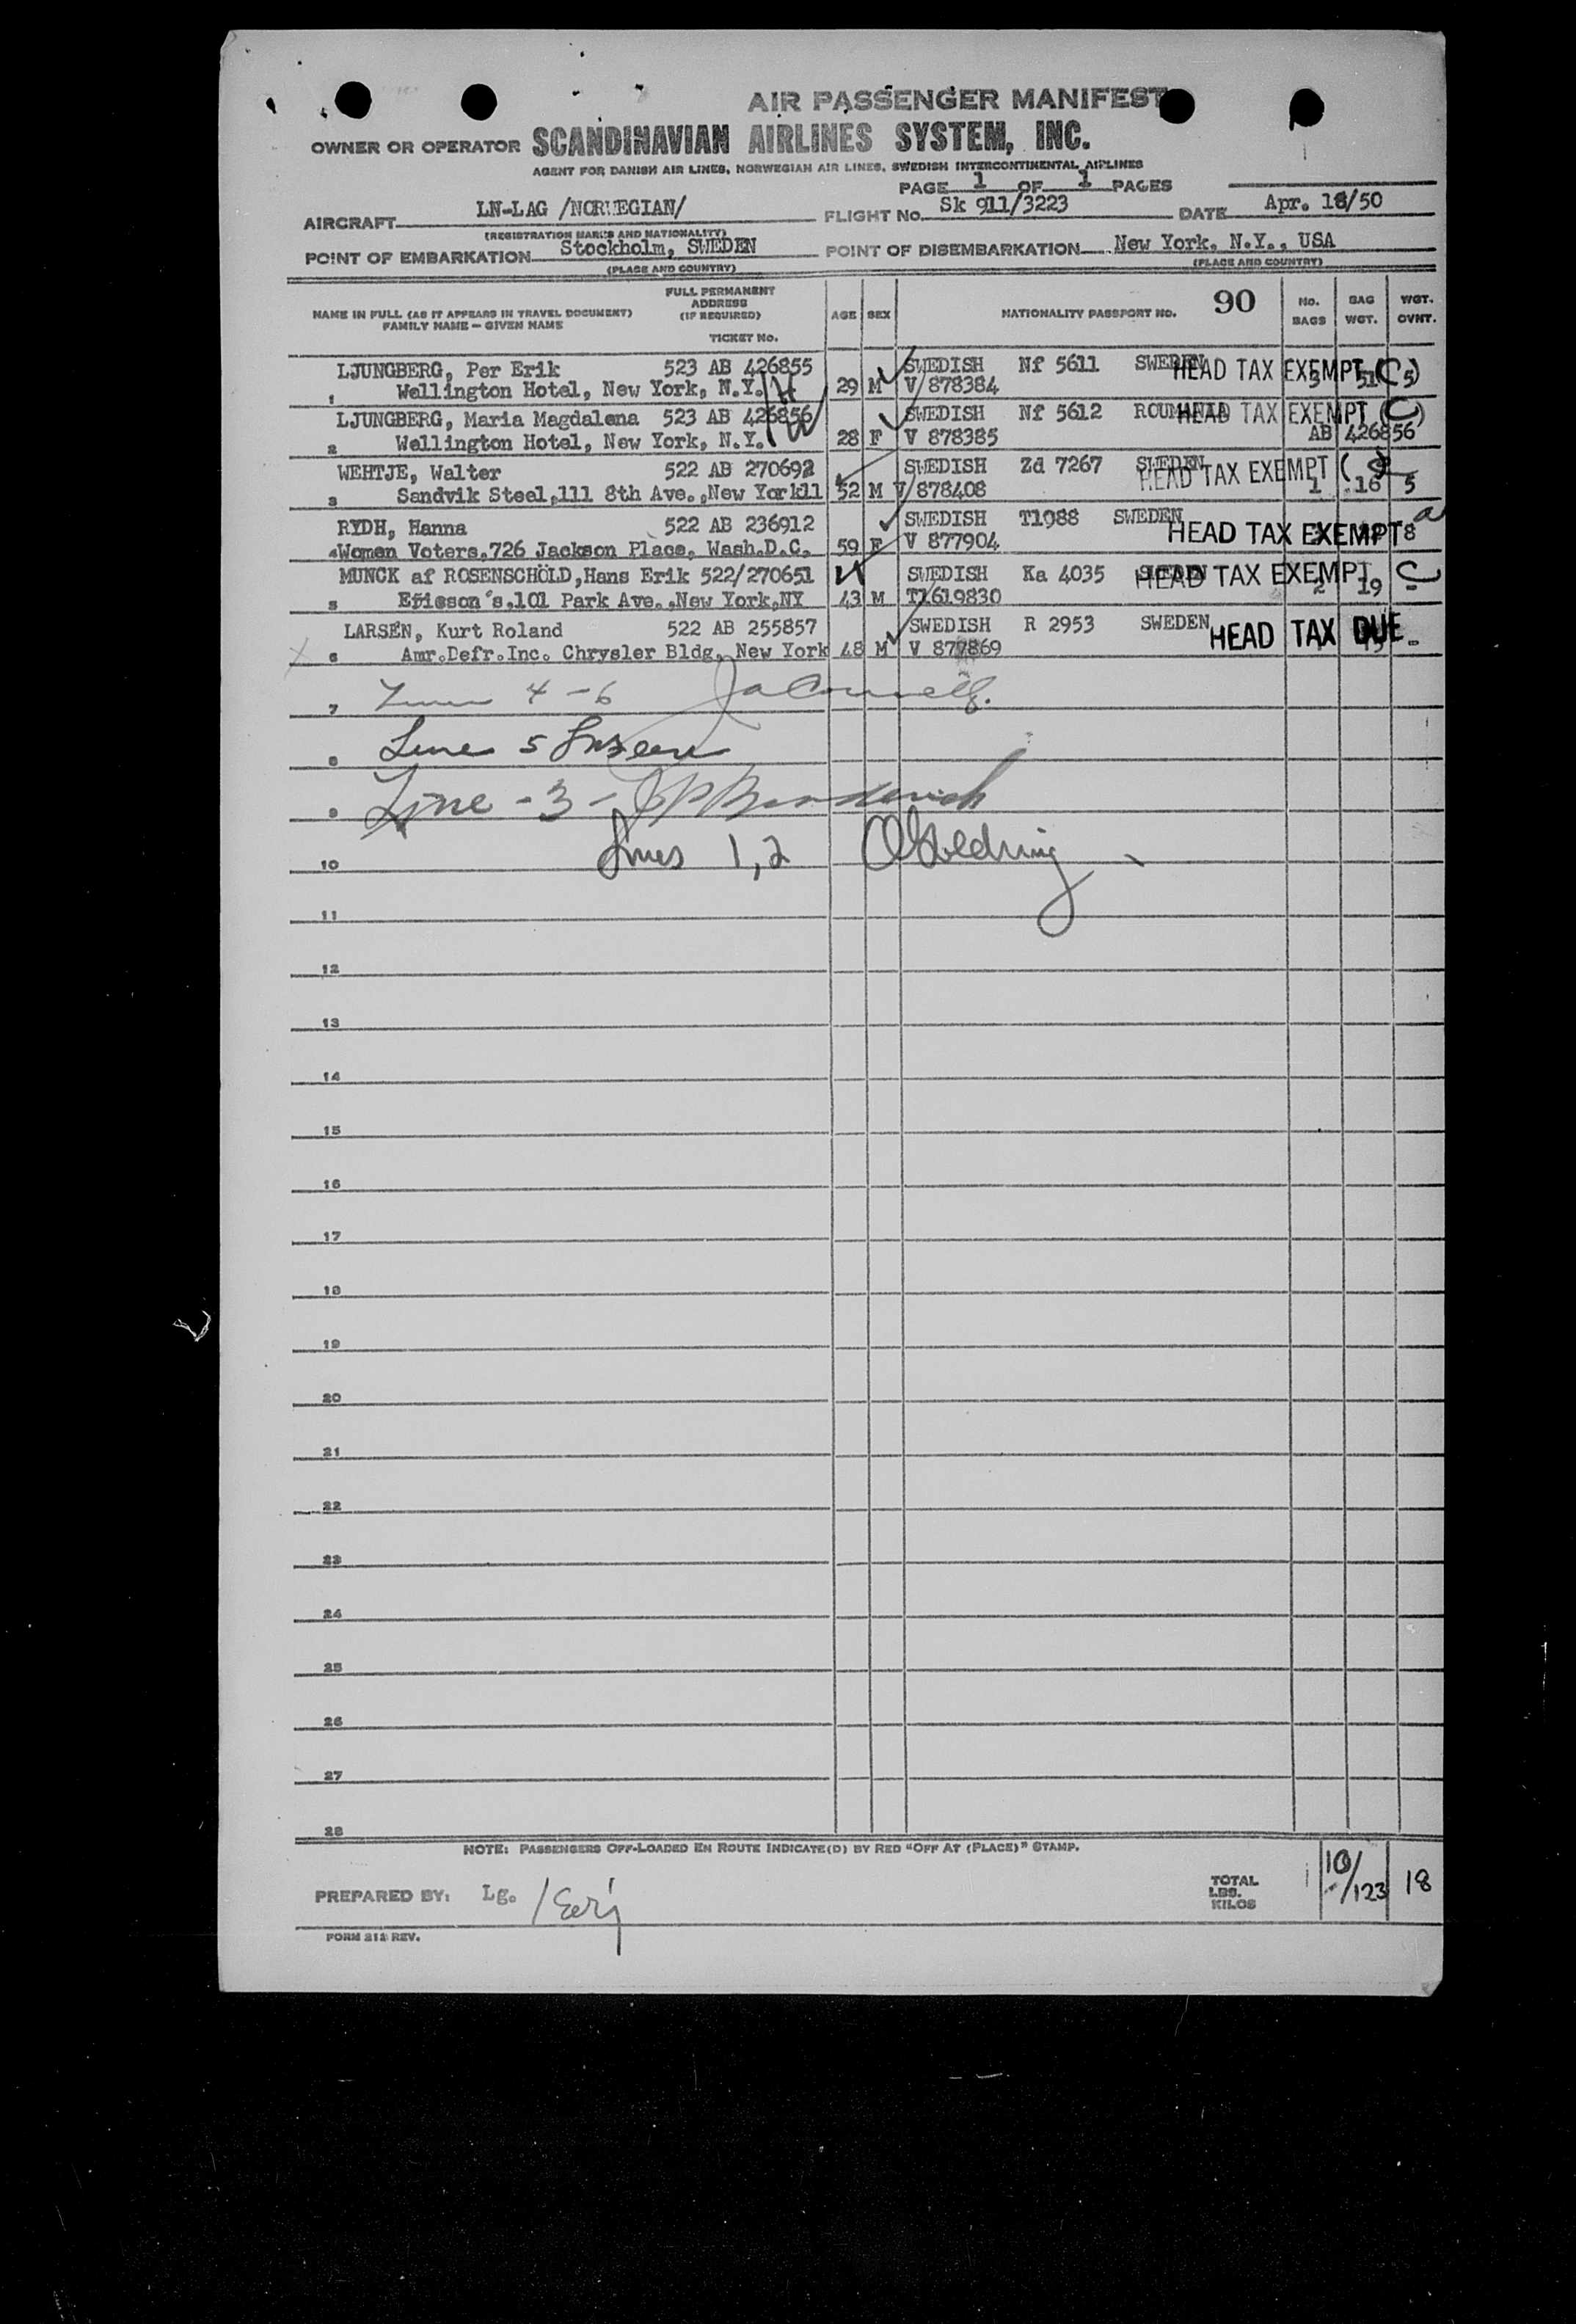 AIR PASSENGER MANIFEST
OWNER OR OPERATOR SCANDINAVIAN AIRLINES SYSTEM, INC.
AGENT FOR DANISH AIR LINES, NORWEGIAN AIR LINES, SWEDISH INTERCONTINENTAL AIRLINES
PAGE 1 OF 1 PAGES
AIRCRAFT LN-LAG /NORWEGIAN/ FLIGHT No. Sk 911/3223 DATE Apr. 18/50
(REGISTRATION MARKS AND NATIONALITY)
POINT OF EMBARKATION Stockholm, SWEDEN POINT OF DISEMBARKATION New York, N.Y., USA
(PLACE AND COUNTRY) (PLACE AND COUNTRY)
NAME IN FULL (AS IT APPEARS IN TRAVEL DOCUMENT) FAMILY NAME - GIVEN NAME FULL PERMANENT ADDRESS (IF REQUIRED) TICKET No. AGE SEX NATIONALITY PASSPORT NO. 90 No. BAGS BAG WGT. WGT. OVNT.
LJUNGBERG, Per Erik 523 AB 426855 SWEDISH Nf 5611 SWEDEN HEAD TAX EXEMPT (C)
1 Wellington Hotel, New York, N.Y. 29 M V 878384 51 5
LJUNGBERG, Maria Magdalena 523 AB 426856 SWEDISH Nf 5612 HEAD TAX EXEMPT (C)
2 Wellington Hotel, New York, N.Y. 28 F V 878385 AB 426856
WEHTJE, Walter 522 AB 270692 SWEDISH Zd 7267 SWEDEN HEAD TAX EXEMPT
3 Sandvik Steel,111 8th Ave.,New York11 52 M V 878408 1 16 5
RYDH, Hanna 522 AB 236912 SWEDISH T1988 SWEDEN HEAD TAX EXEMPT
4 Women Voters,726 Jackson Place, Wash.D.C. 59 F V 877904 8
MUNCK af ROSENSCHÖLD,Hans Erik 522/270651 SWEDISH Ka 4035 SWEDEN HEAD TAX EXEMPT C
5 Ericson's,101 Park Ave.,New York,NY 43 M T1619830 2 19 -
LARSÉN, Kurt Roland 522 AB 255857 SWEDISH R 2953 SWEDEN HEAD TAX DUE
6 Amr.Defr.Inc. Chrysler Bldg. New York 48 M V 877869
7 4-6
8 Line 5
9 Line - 3 -
10 Lines 1,2
11
12
13
14
15
16
17
18
19
20
21
22
23
24
25
26
27
28
NOTE: PASSENGERS OFF-LOADED EN ROUTE INDICATE(D) BY RED "OFF AT (PLACE)" STAMP.
PREPARED BY: Lg. TOTAL LBS. KILOS 10/123 18
FORM 212 REV.